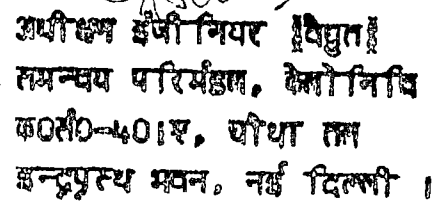 अधीक्षण इंजीनियर [विद्युत]
समन्वय परिमंडल, केलोनिवि
क0सं0-401ए, चौथा तल
इन्द्रप्रस्थ भवन, नई दिल्ली ।